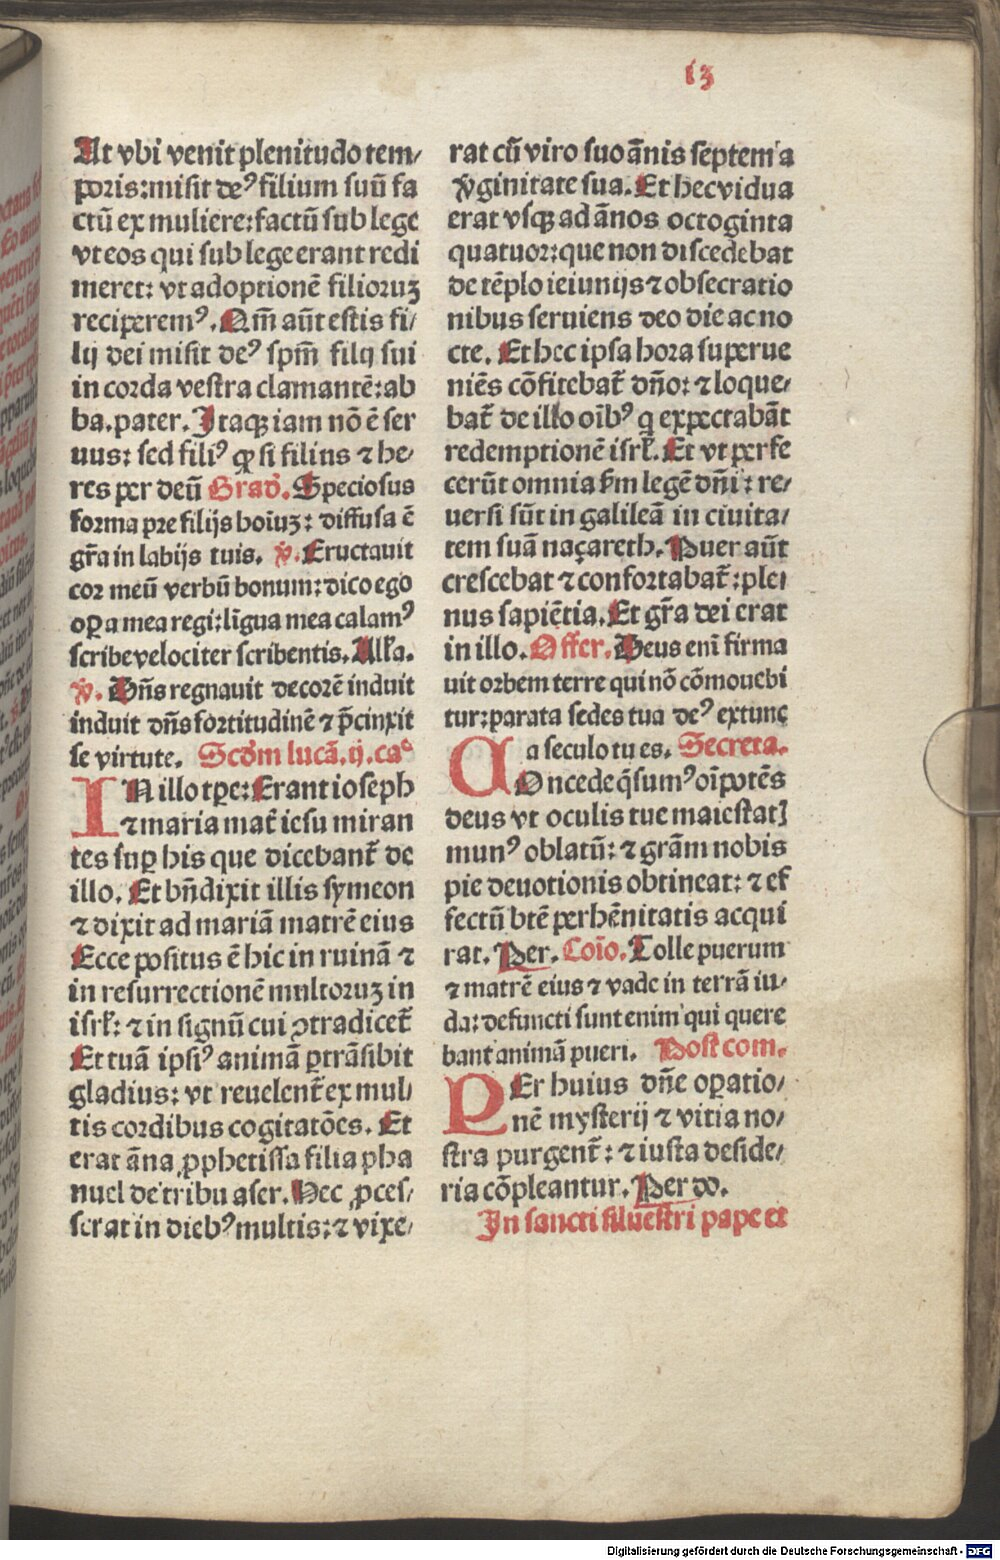 13
At vbi venit plenitudo tem/
poris: misit deꝰ filium suū fa
ctū ex muliere: factū sub lege
vt eos qui sub lege erant redi
meret: vt adoptionē filioruꝫ
reciperemꝰ. Qm̄ aūt estis fi/
lij dei misit deꝰ spm̄ filij sui
in corda vestra clamantē: ab
ba. pater. Itaqꝫ iam nō ē ser
uus: sed filiꝰ ꝙ si filius ⁊ he/
res per deū Grad̛. Speciosus
forma pre filijs hoīuꝫ: diffusa ē
gr̄a in labijs tuis. ℣. Eructauit
cor meū verbū bonum: dico ego
oꝑa mea regi: līgua mea calamꝰ
scribe velociter scribentis. Alla.
℣. Dn̄s regnauit decorē induit
induit dn̄s fortitudinē ⁊ p̄cinxit
se virtute. Scd̛m lucā. ij. caº
IN illo tꝑe: Erant ioseph
⁊ maria mat̄ iesu miran
tes suꝑ his que dicebant̄ de
illo. Et bn̄dixit illis symeon
⁊ dixit ad mariā matrē eius
Ecce positus ē hic in ruinā ⁊
in resurrectionē multoruꝫ in
isrl̄: ⁊ in signū cui ꝯtradicet̄
Et tuā ipsiꝰ animā ꝑtrāsibit
gladius: vt reuelent̄ ex mul/
tis cordibus cogitatōes. Et
erat āna ꝓphetissa filia pha
nuel de tribu aser. Hec ꝓces/
serat in diebꝰ multis: ⁊ vixe/
rat cū viro suo ānis septem a
v̄ginitate sua. Et hec vidua
erat vsqꝫ ad ānos octoginta
quatuor: que non discedebat
de tēplo ieiunijs ⁊ obsecratio
nibus seruiens deo die ac no
cte. Et hec ipsa hora superue
niēs cōfitebat̄ dn̄o: ⁊ loque/
bat̄ de illo oībꝰ q expectabāt
redemptionē isrl̄. Et vt perfe
cerūt omnia ẜm legē dn̄i: re/
uersi sūt in galileā in ciuita/
tem suā naçareth. Puer aūt
crescebat ⁊ confortabat̄: ple/
nus sapiētia. Et gr̄a dei erat
in illo. Offer. Deus eni firma
uit orbem terre qui nō cōmouebi
tur: parata sedes tua deꝰ extunc
a seculo tu es. Secreta.
COncede q̄sumꝰ oīpotēs
deus vt oculis tue maiestatꝭ
munꝰ oblatū: ⁊ grām nobis
pie deuotionis obtineat: ⁊ ef
fectū btē perhēnitatis acqui
rat. Per. Coīo. Tolle puerum
⁊ matrē eius ⁊ vade in terrā iu/
da: defuncti sunt enim qui quere
bant animā pueri. Post com.
PEr huius dn̄e oꝑatio/
nē mysterij ⁊ vitia no/
stra purgent̄: ⁊ iusta deside/
ria cōpleantur. Per do.
In sancti siluestri pape et
Digitalisierung gefördert durch die Deutsche Forschungsgemeinschaft - DFG